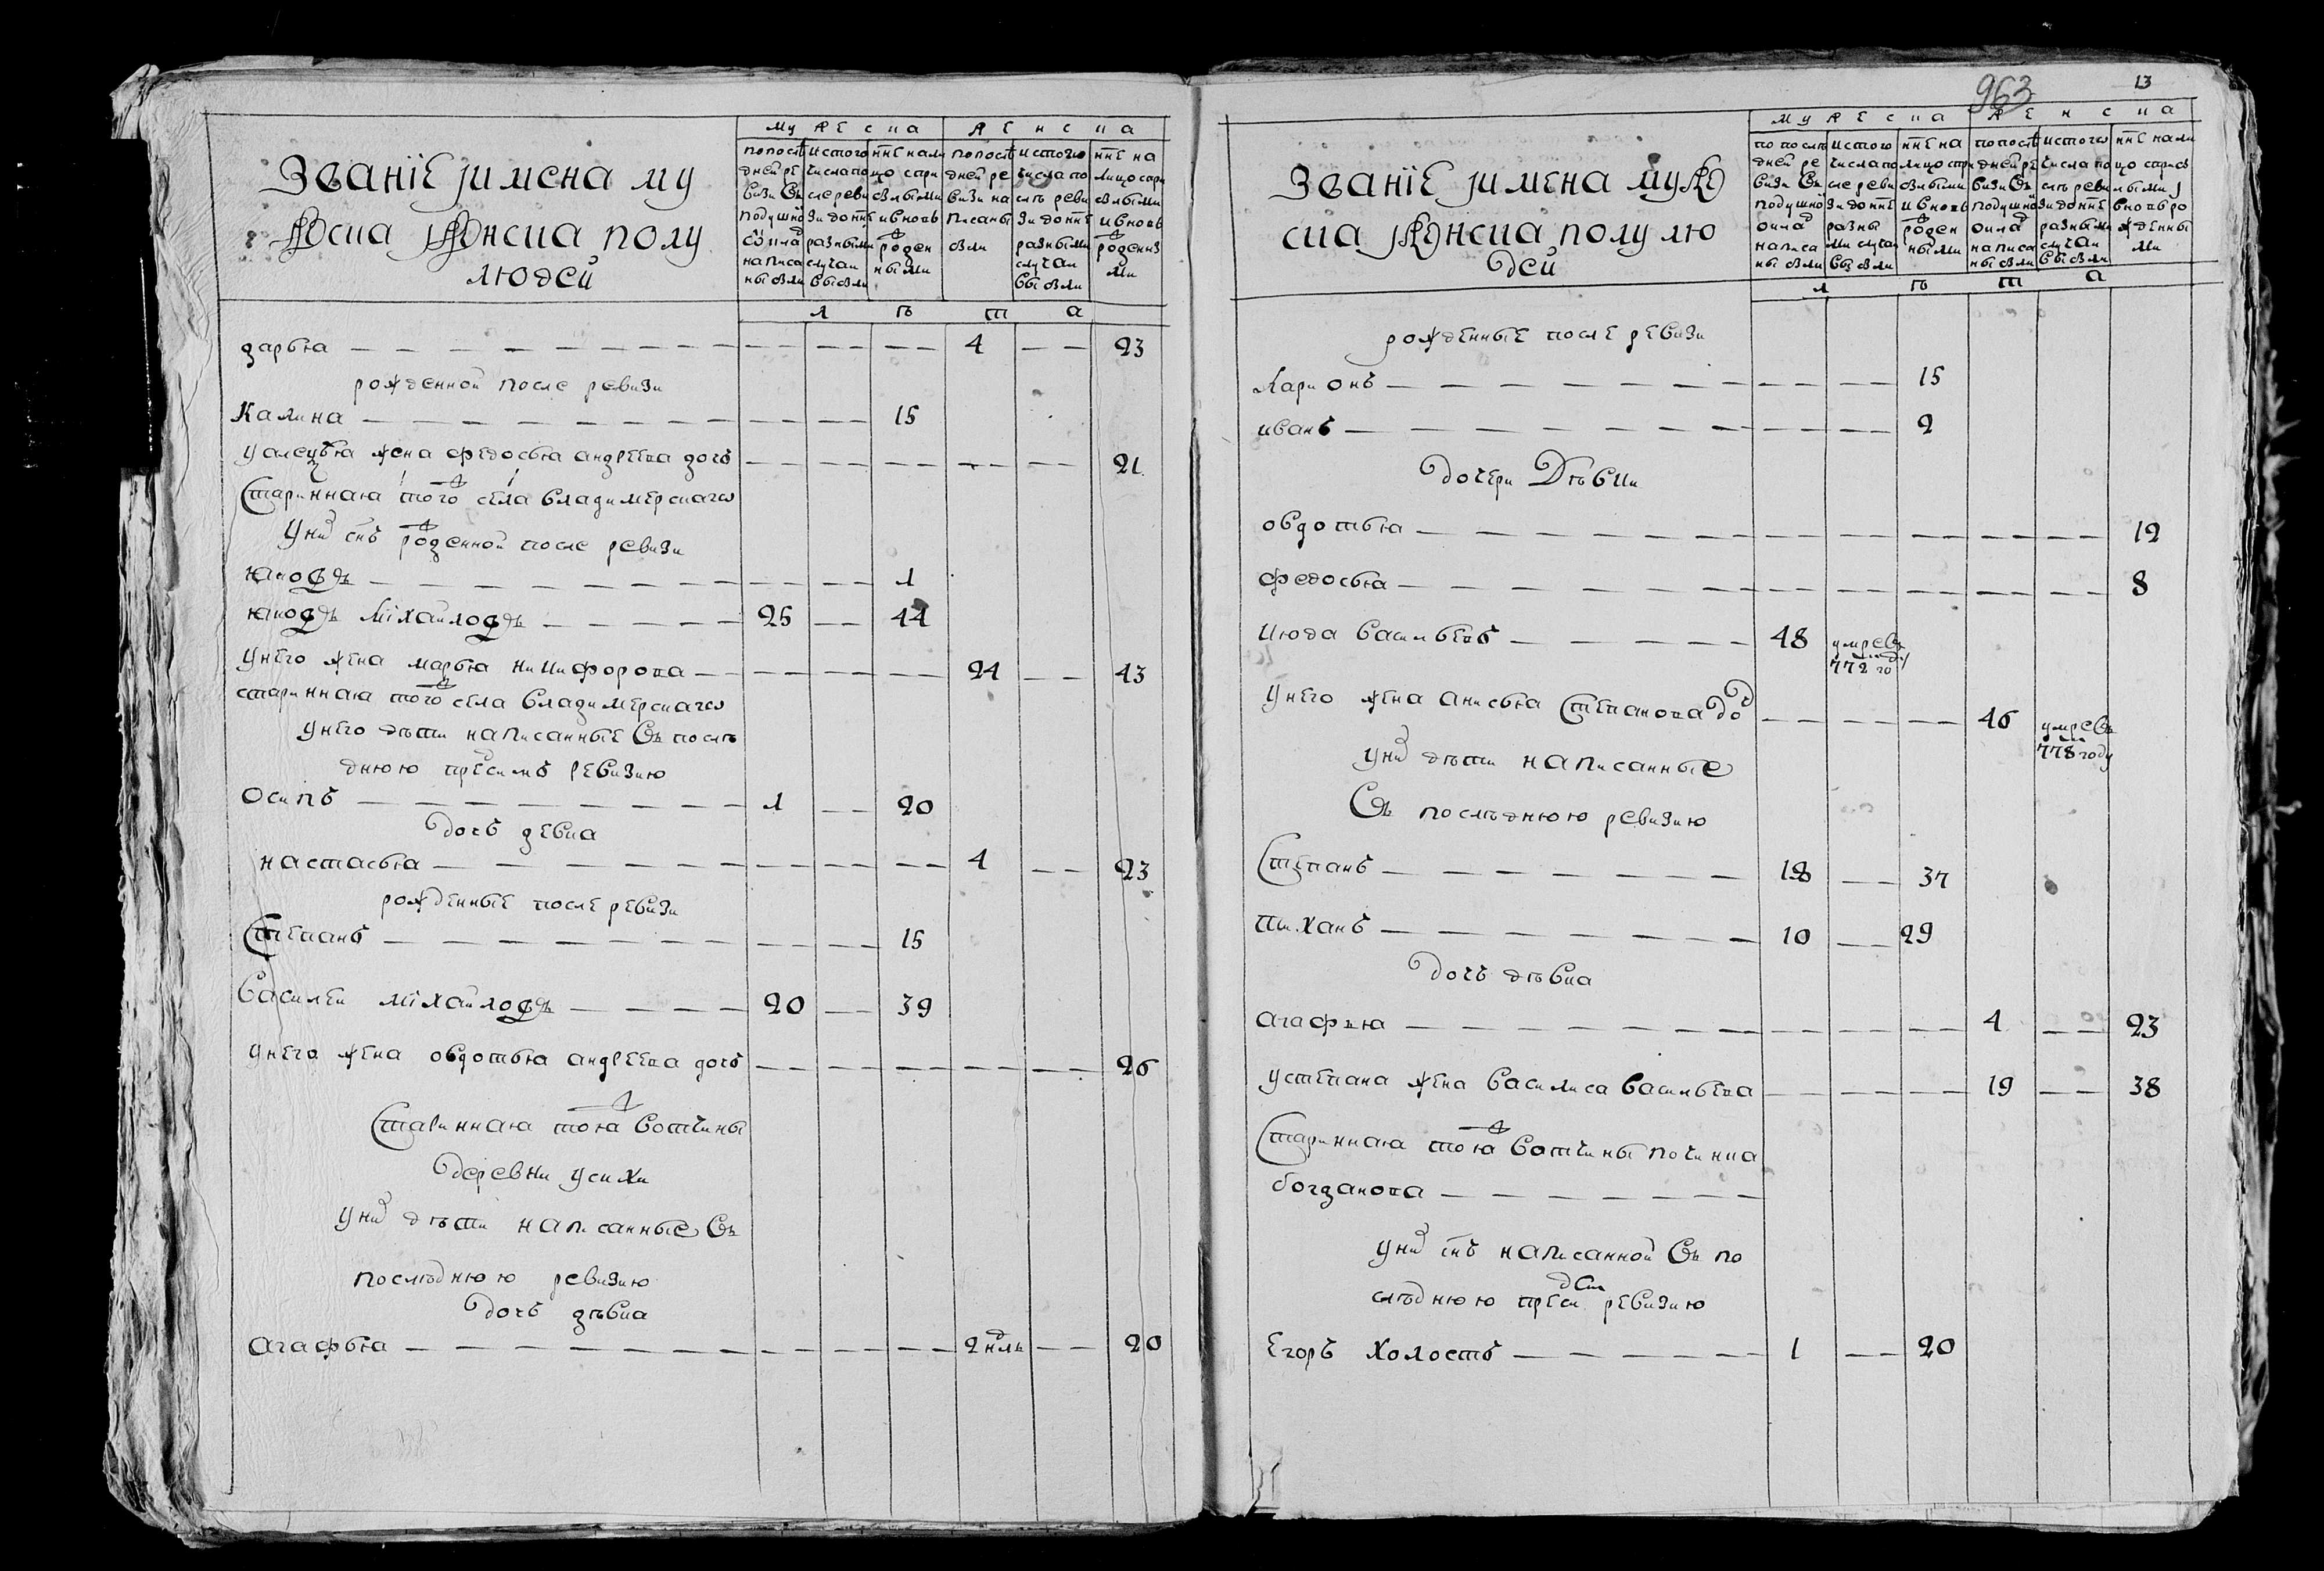 Званiе jимена му
жеска jженска полу
людей
мужеска женска
по послѣ
дней ре
визи въ
подушно
окла
написа
ны были
ис того
числа по
сле реви
зи до ннѣ
разными
случаи
выбыли
ннѣ нали
цо с при
былыми
и вновь
рожден
ными
по послѣ
дней ре
визи на
писаны
были
ис того
числа по
слѣ реви
зи до ннѣ
разными
случаи
выбыли
ннѣ на
лицо с при
былыми
и вновь
рожденны
ми
лѣта
дарья 4 23
рожденной после ревизи
Калина 15
у алексѣя жена федосья андреева дочь 21
Старинная того ж села владимерскаго
У них снъ рожденной после ревизи
яковъ 1
яковъ мiхаиловъ 25 44
у него жена марья никифорова 24 43
старинная того ж села владимерскаго
у него дѣти написанные въ послѣ
днюю пред симъ ревизию
Осипъ 1 20
дочь девка
настасья 4 23
рожденные после ревизи
Степанъ 15
Василеи мiхаиловъ 20 39
у него жена овдотья андреева дочь 26
Старинная тоя ж вотчины
деревни усихи
у них дѣти написанные въ
последнюю ревизию
дочь дѣвка
агафья 2 нлѣ 20
963 13
Званiе jимена муже
ска jженска полу лю
дей
мужеска женска
по послѣ
дней ре
визи въ
подушно
окла
написа
ны были
ис того
числа по
сле реви
зи до ннѣ
разны
ми случаи
выбыли
ннѣ на
лицо с при
былыми
и вновь
рожден
ными
по послѣ
дней ре
визи въ
подушно
окла
написа
ны были
ис того
числа по
слѣ реви
зи до ннѣ
разными
случаи
выбыли
ннѣ нали
цо с при
былыми j
вновь ро
жденны
ми
лѣта
рожденные после ревизи
Ларионъ 15
иванъ 2
дочери Дѣвки
овдотья 12
федосья 8
июда васильевъ 48 умре въ
772 го
у него жена анисья степанова до 46 умре въ
778 году
у них дѣти написанные
въ послѣднюю ревизию
Степанъ 18 37
тиханъ 10 29
дочь дѣвка
агафья 4 23
у степана жена василиса васильева 19 38
Старинная тоя ж вотчины починка
богданова
у них снъ написанной въ по
слѣднюю пред сим ревизию
Егоръ холостъ 1 20